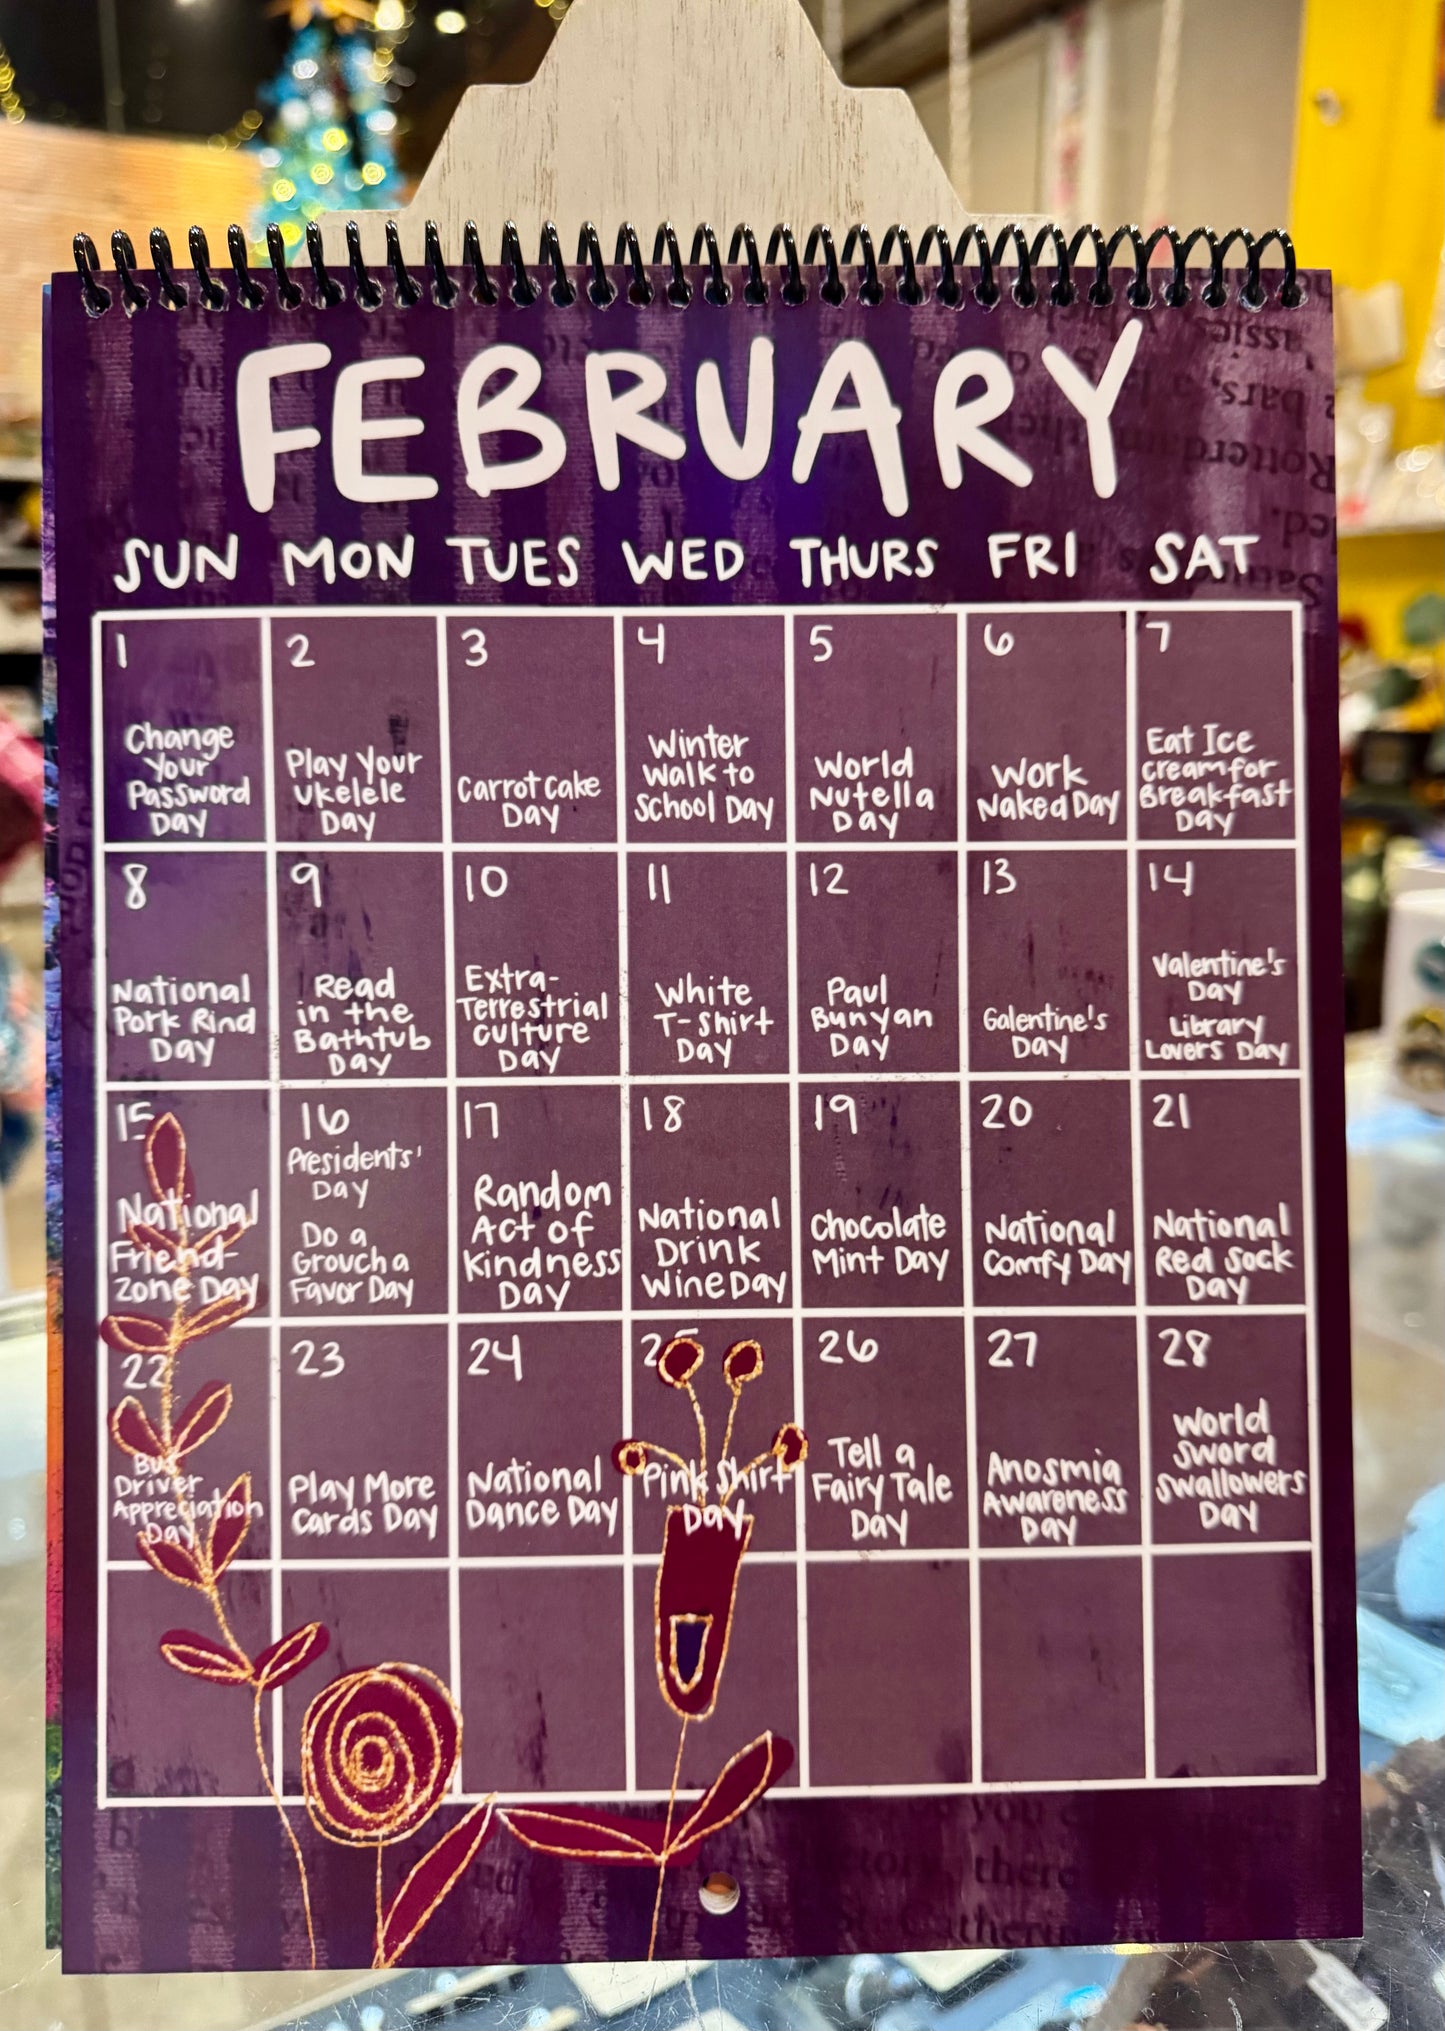 FEBRUARY
SUN MON TUES WED THURS FRI SAT
1
Change
Your
Password
Day
2
Play Your
Ukelele
Day
3
Carrot Cake
Day
4
Winter
Walk to
School Day
5
World
Nutella
Day
6
Work
Naked Day
7
Eat Ice
Cream for
Breakfast
Day
8
National
Pork Rind
Day
9
Read
in the
Bathtub
Day
10
Extra-
Terrestrial
Culture
Day
11
White
T-Shirt
Day
12
Paul
Bunyan
Day
13
Galentine's
Day
14
Valentine's
Day
Library
Lovers Day
15
National
Friend-
Zone Day
16
Presidents'
Day
Do a
Grouch a
Favor Day
17
Random
Act of
Kindness
Day
18
National
Drink
Wine Day
19
Chocolate
Mint Day
20
National
Comfy Day
21
National
Red Sock
Day
22
Bus
Driver
Appreciation
Day
23
Play More
Cards Day
24
National
Dance Day
25
Pink Shirt
Day
26
Tell a
Fairy Tale
Day
27
Anosmia
Awareness
Day
28
World
Sword
Swallowers
Day